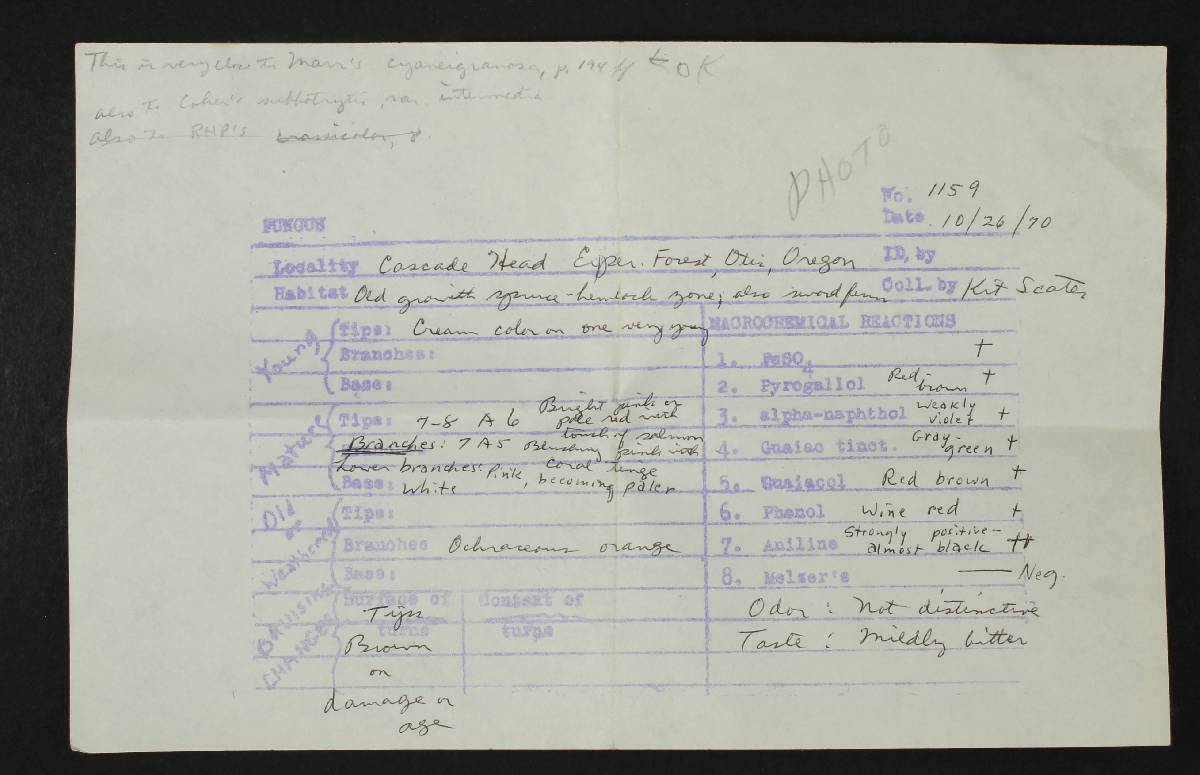 This is very close to Marr's cyaneigranosa, p. 194 ff ← OK
also to Coker's subbotrytis, var. intermedia
also to RHP's
PHOTO
No. 1159
FUNGUS
Date 10/26/70
Locality Cascade Head Exper. Forest, Otis, Oregon ID, by
Habitat Old growth spruce-hemlock zone; also sword fern Coll. by Kit Scates
Young
Tips: Cream color on one very young
MACROCHEMICAL REACTIONS
Branches:
1. FeSO4 +
Base:
2. Pyrogallol Red-brown +
Mature
Tips: 7-8 A 6 Bright pink or pale red with touch of salmon
3. alpha-naphthol weakly violet +
Branches: 7 A5 Blending pink with coral tinge
4. Guaiac tinct. Gray-green +
Lower branches: Pink, becoming paler
Base: White
5. Guaiacol Red brown +
Old or Weathered
Tips:
6. Phenol Wine red +
Branches Ochraceous orange
7. Aniline Strongly positive - almost black ++
Base:
8. Melzer's — Neg.
BRUISING CHANGES
Surface of turns
Context of turns
Tips
Brown
on
damage or
age
Odor: Not distinctive
Taste: Mildly bitter